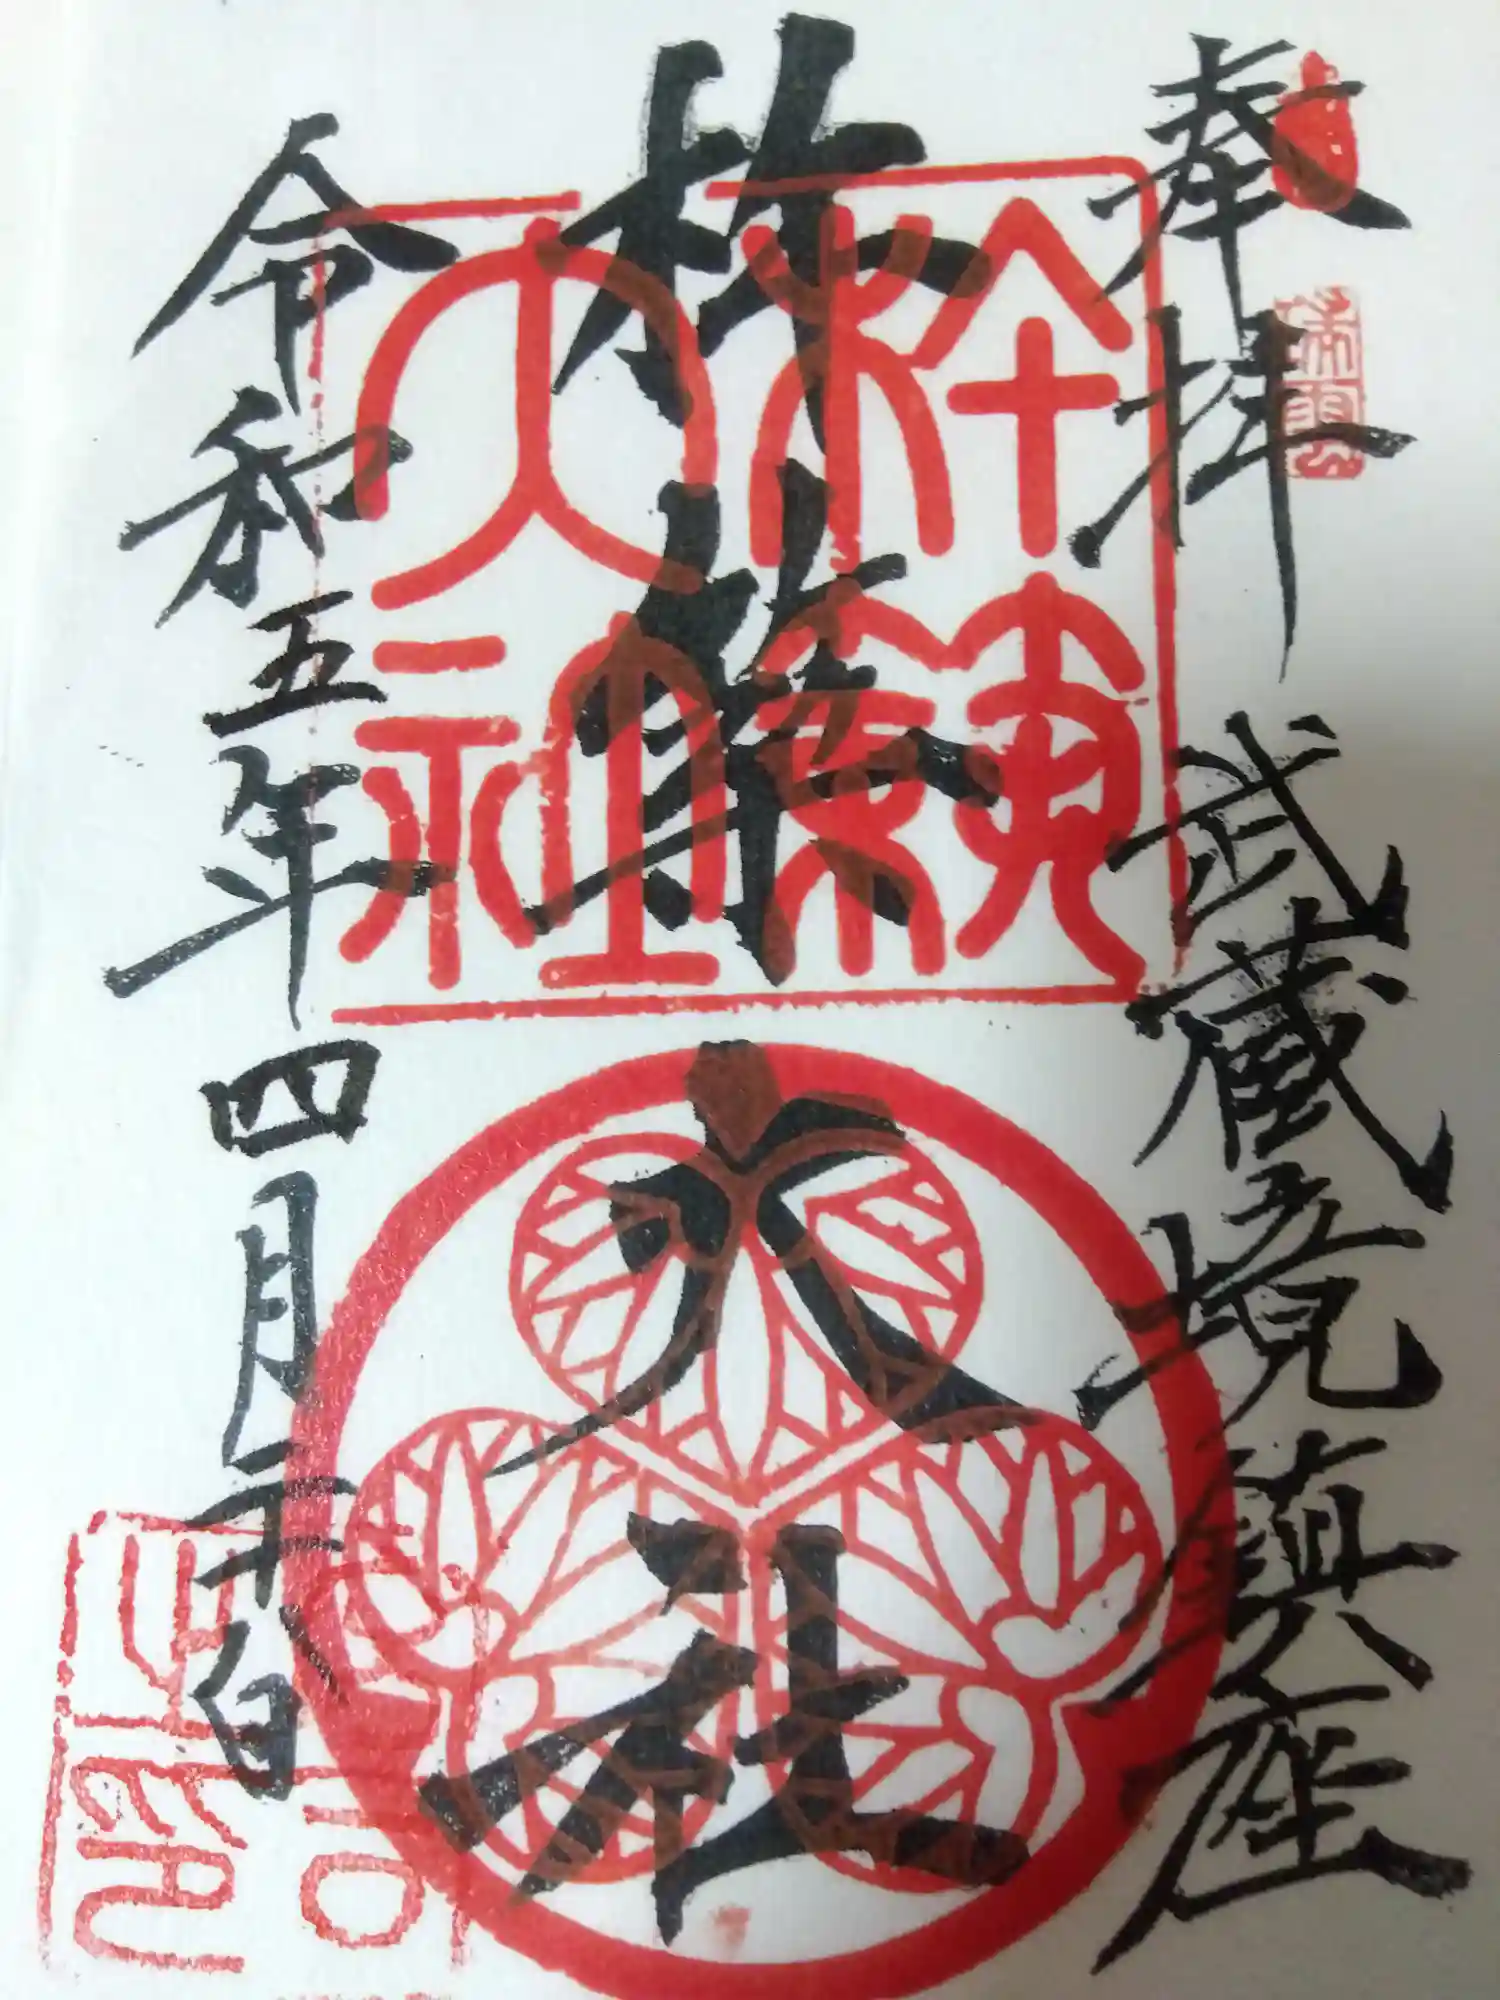 奉拝
武蔵境鎮座
杵築大社
杵築
大社
令和五年四月二十八日